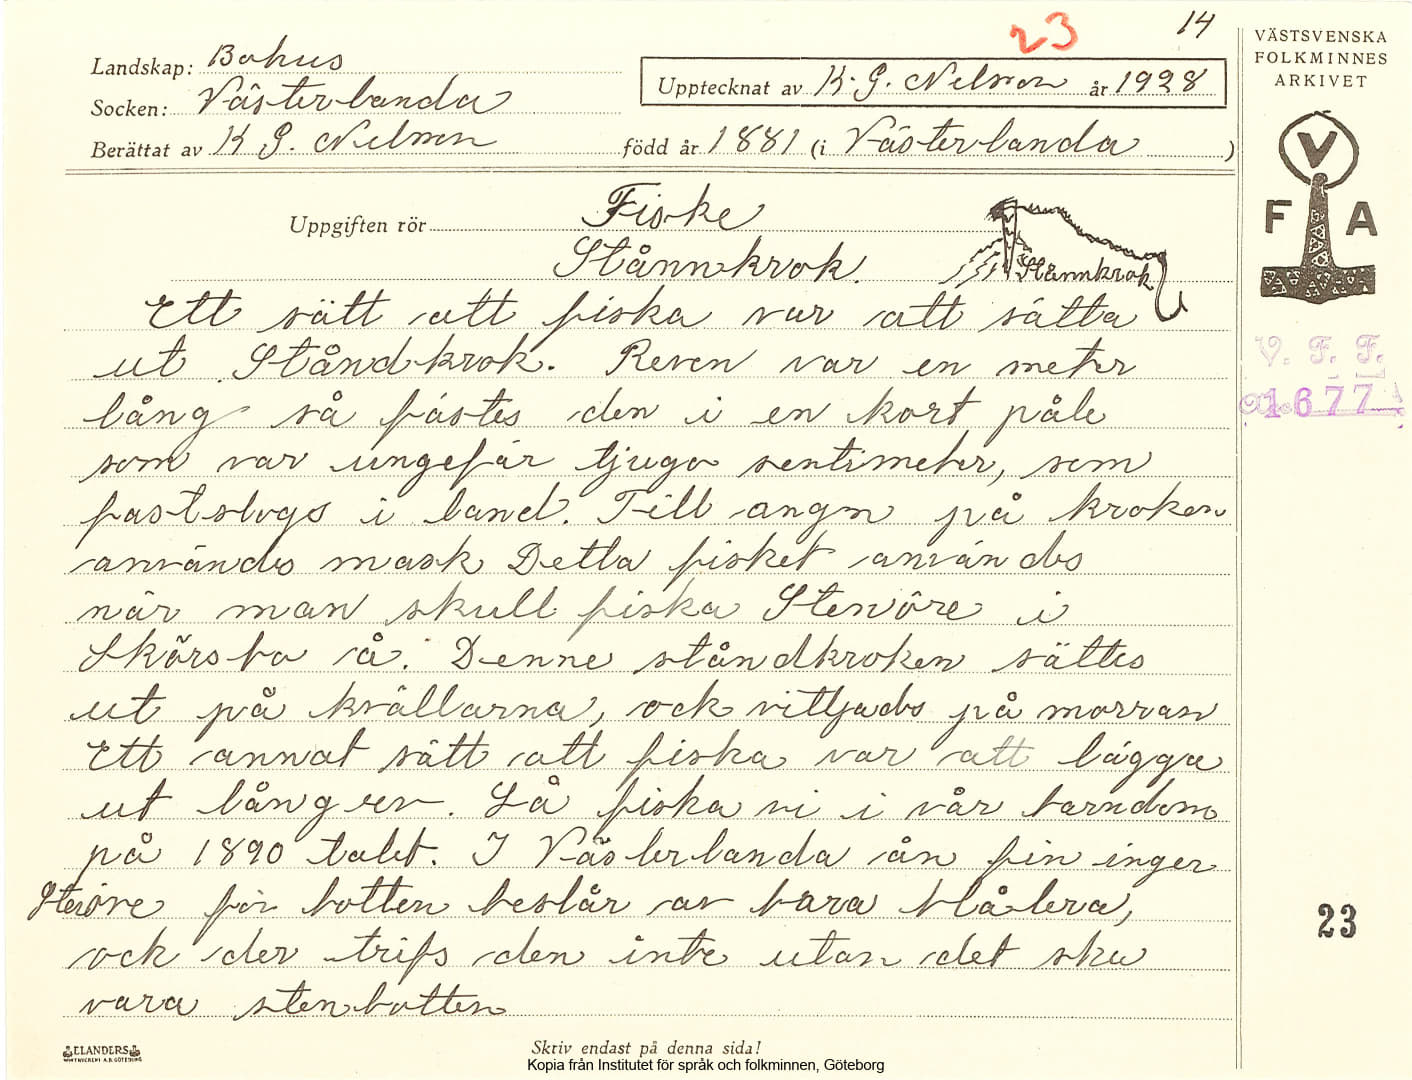 23
14
Landskap: Bohus
Socken: Västerlanda
Berättat av K G. Nelson
Upptecknat av K. G. Nelson år 1928
född år 1881 (i Västerlanda)
VÄSTSVENSKA
FOLKMINNES
ARKIVET
V
F A
Uppgiften rör Fiske
Stånnkrok.
Stånnkrok
Ett sätt att fiska var att sätta
ut Ståndkrok. Reven var en meter
lång så fästes den i en kort påle
som var ungefär tjugo sentimeter, som
fastslogs i land. Till angn på kroken
användes mask Detta fisket användes
när man skull fiska Stenöre i
Skörsbo å. Denne ståndkroken sättes
ut på kvällarna, ock vittjades på morran
Ett annat sätt att fiska var att lägga
ut långrev. Så fiska vi i vår barndom
på 1890 talet. I Västerlanda ån fin inger
Stenöre för botten består av bara blålera,
ock der trifs den inte utan det ska
vara stenbotten
V. F. F.
1677
23
ELANDERS
Skriv endast på denna sida!
Kopia från Institutet för språk och folkminnen, Göteborg